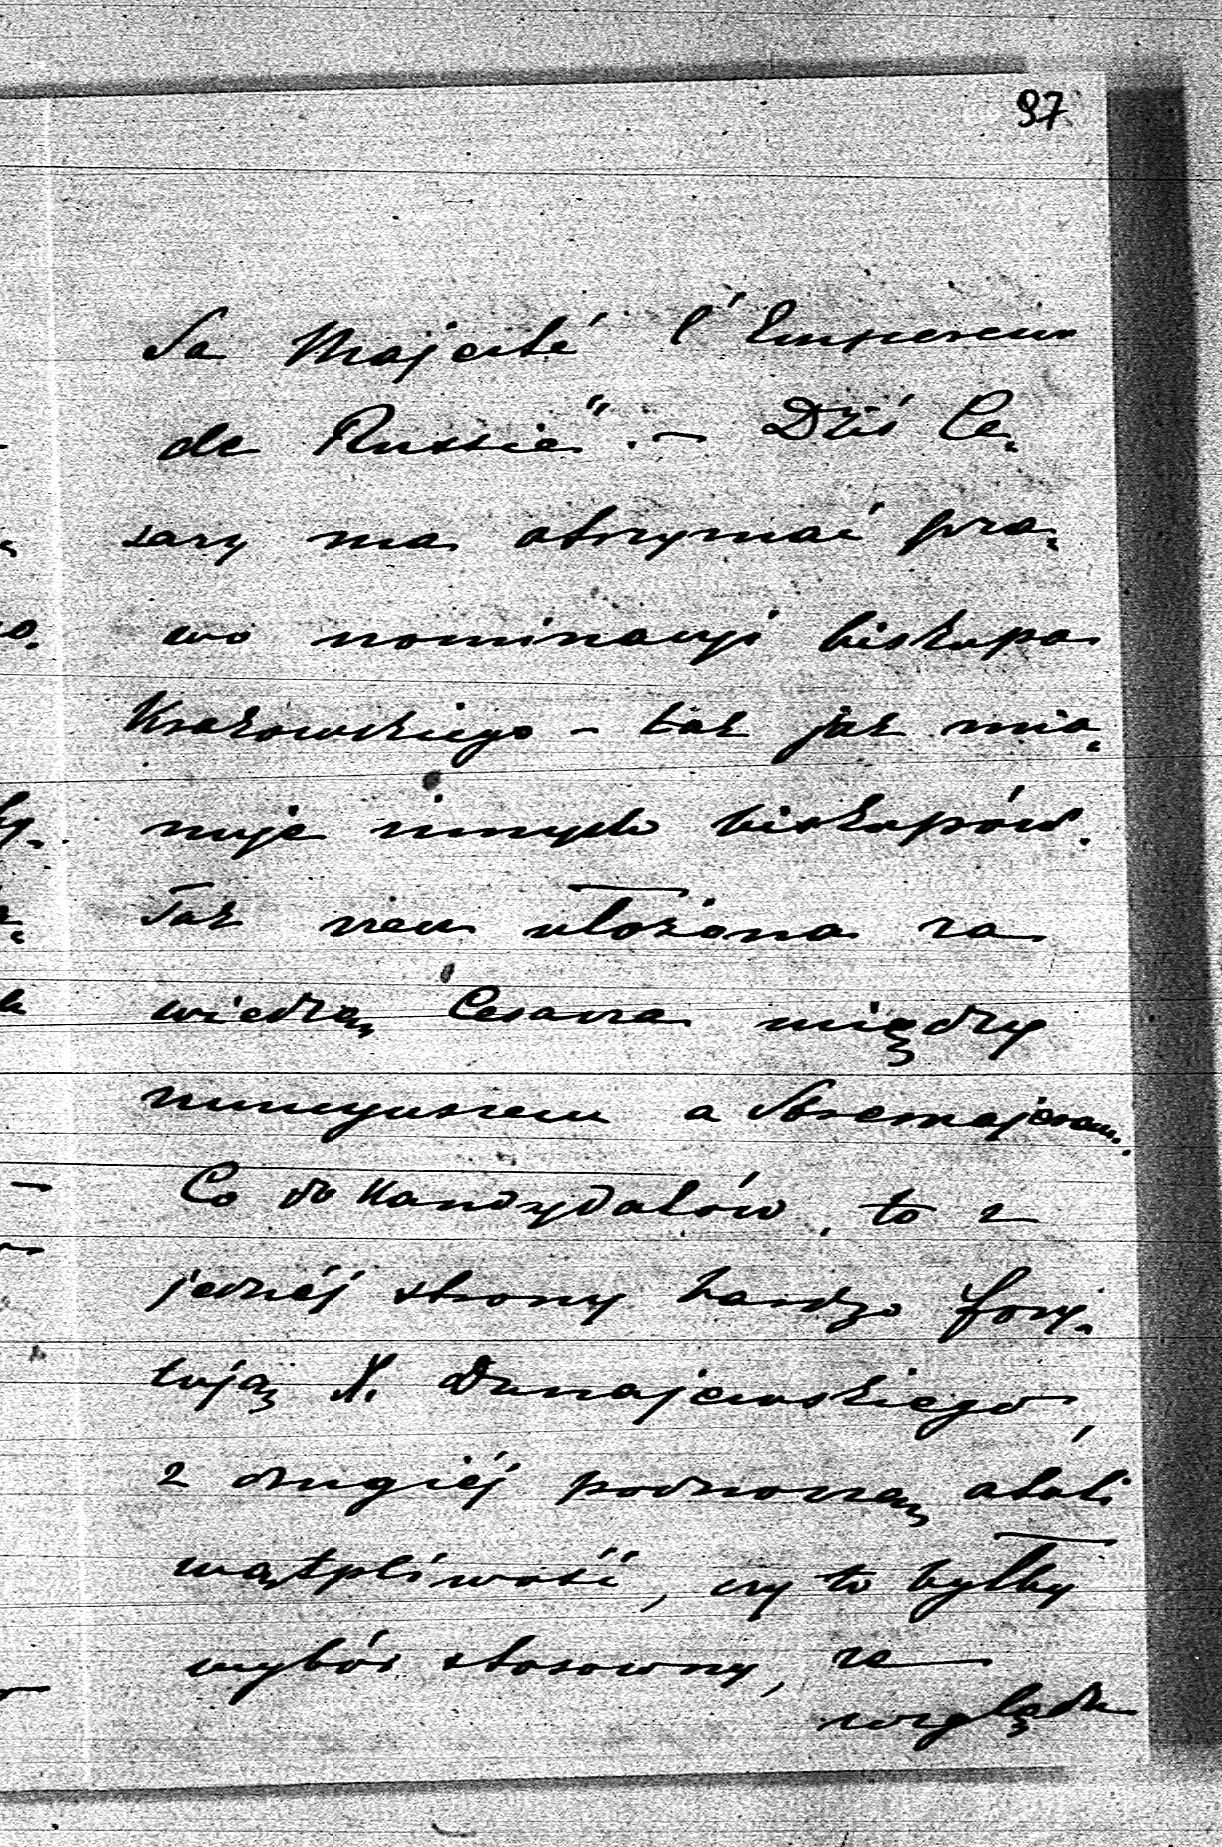 97
Sa Majesté l'Empereur
de Russie". – Dziś Ce-
sarz ma otrzymać pra-
wo nominacyi biskupa
Krakowskiego – tak jak mia-
nuje innych biskupów.
Tak rzecz ułożona za
wiedzą Cesarza między
nuncyuszem a Stremajerem.
Co do Kandydatów, to z
jednéj strony bardzo fory-
tują X. Dunajewskiego,
z drugiéj podnoszą
wątpliwość, czy to byłby
wybór stosowny, ze
względu